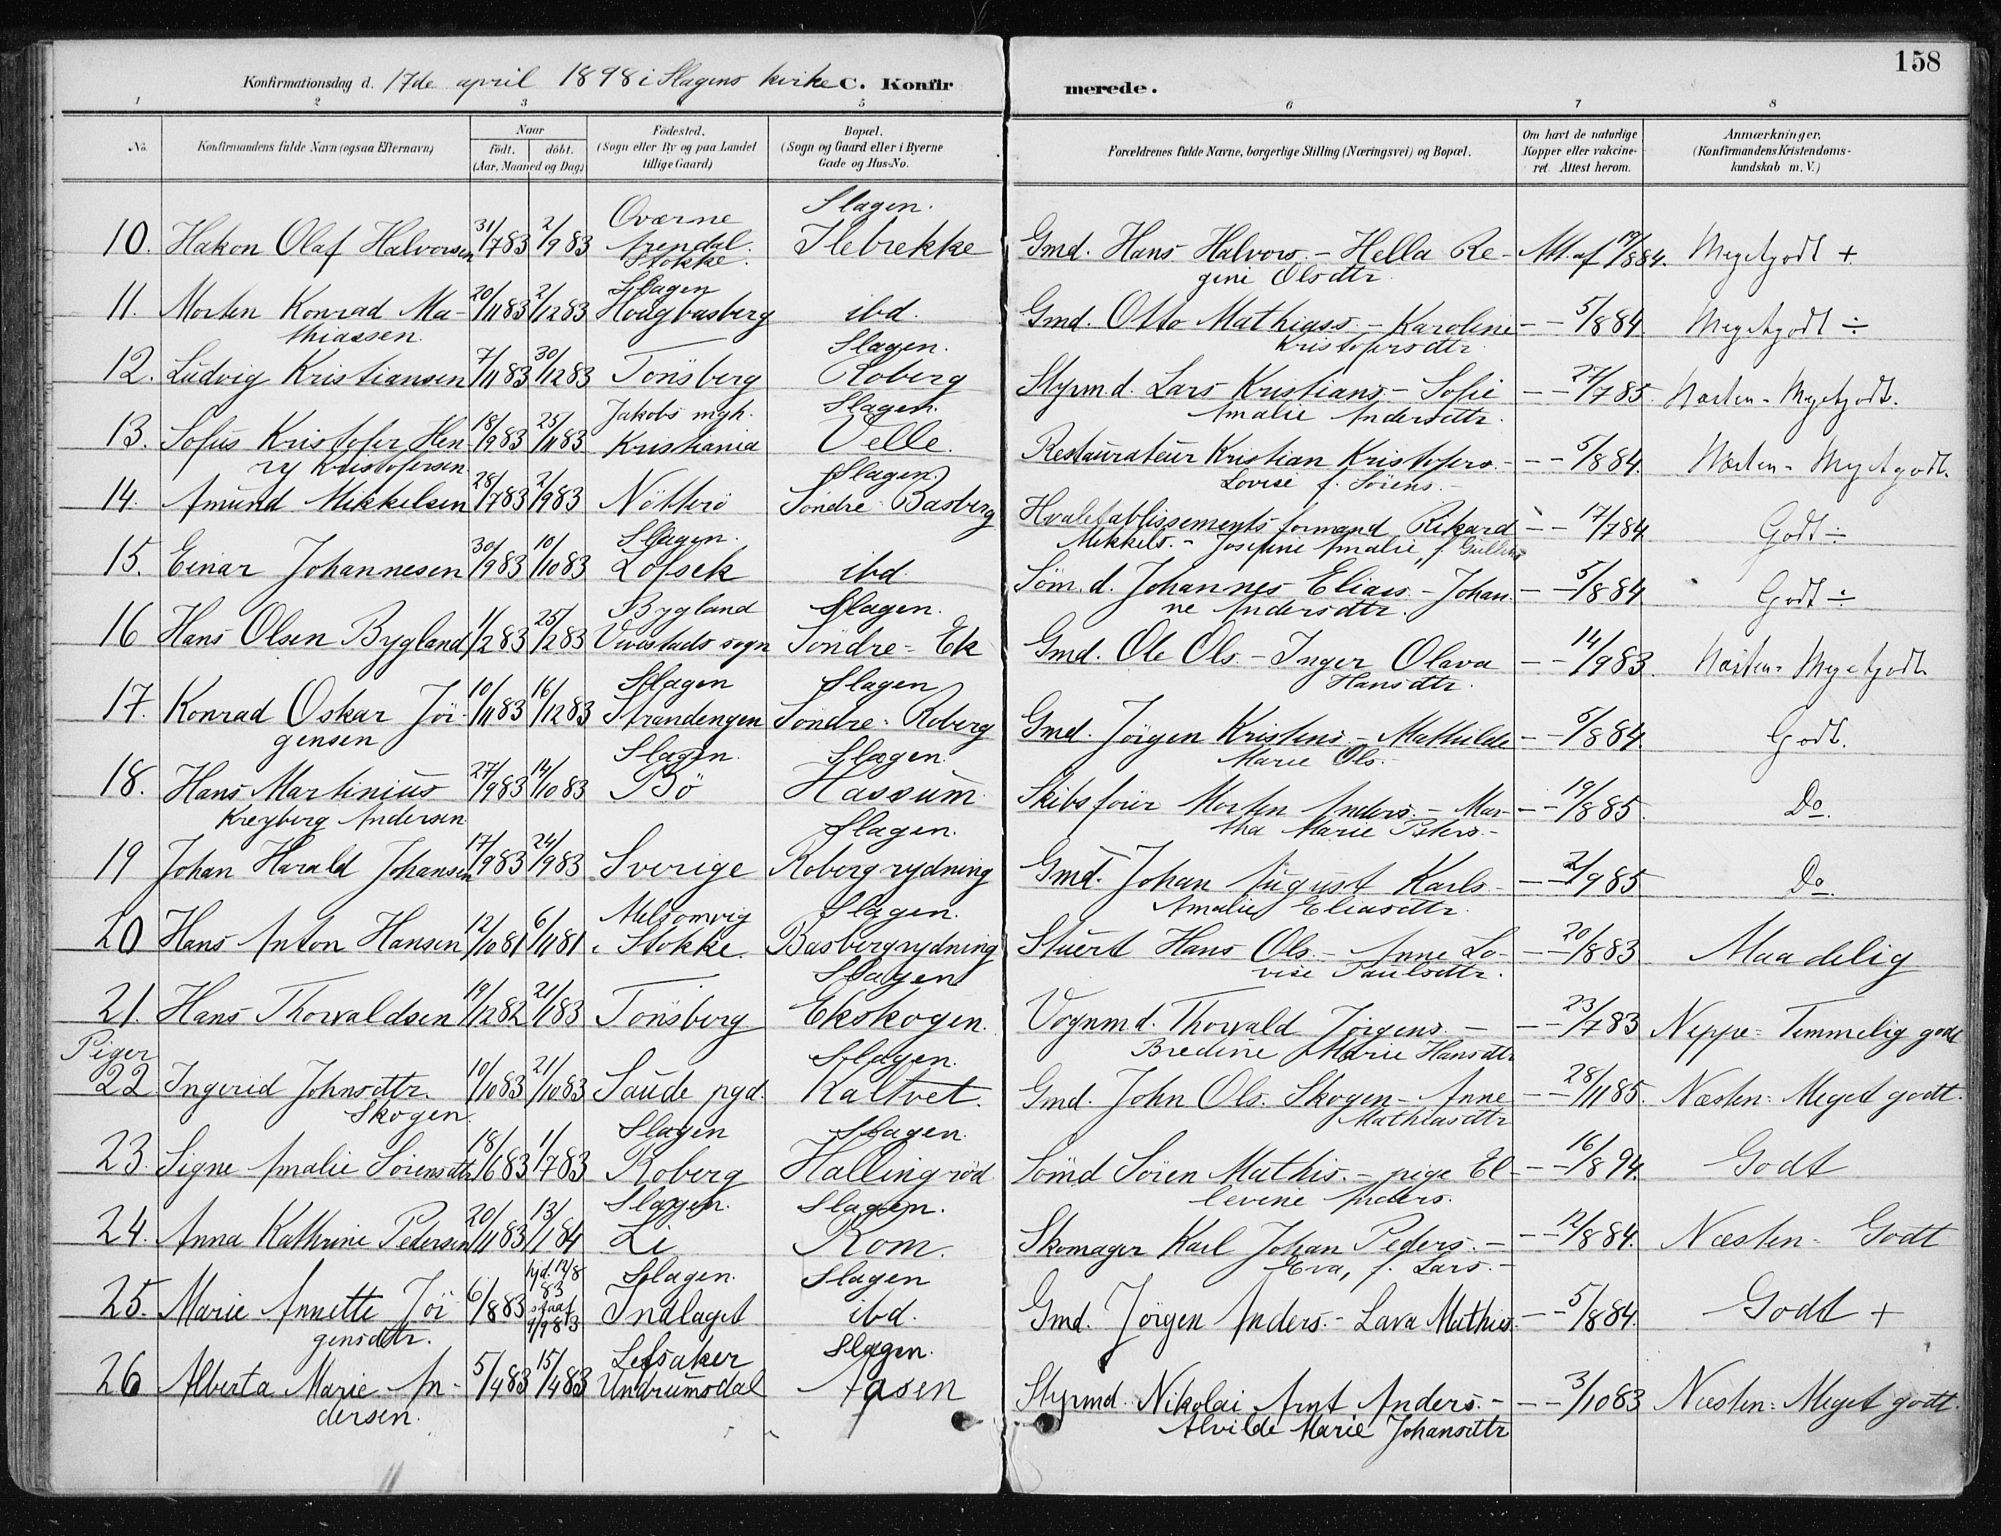 158
Konfirmationsdag d. 17de april 1898 i Slagens kirke C. Konfir merede.
1 2 3 4 5 6 7 8
No. Konfirmandens fulde Navn (ogsaa Efternavn) Naar födt. döbt. (Aar, Maaned og Dag) Födested. (Sogn eller By og paa Landet tillige Gaard) Bopæl. (Sogn og Gaard eller i Byerne Gade og Hus-No.
Forældrenes fulde Navne, borgerlige Stilling (Næringsvei) og Bopæl. Om havt de naturlige Kopper eller vakcineret. Attest herom. Anmærkninger. (Konfirmandens Kristendomskundskab m. V.)
Slagen.
10. Hakon Olaf Halvorsen 31/7 83 2/9 83 Arendal. Stokke. Ilebrekke Gmd. Hans Halvors. - Hella Re- Att. af 19/8 84. Megetgodt +
gine Olsdtr.
Slagen
11. Morten Konrad Ma- 20/11 83 2/12 83 Hougbasberg ibd. Gmd. Otto Mathiass - Karoline - - 5/8 84. Megetgodt ÷
thiassen. Slagen. Kristofersdtr.
12. Ludvig Kristiansen 7/11 83 30/12 83 Tönsberg Roberg Styrmd. Lars Kristians. - Sofie - - 27/7 85. Næsten - Megetgodt.
Jakobs mgh. Slagen. Amalie Andersdtr.
13. Sofus Kristofer Hen- 18/9 83 25/11 83 Kristiania Velle. Restaurateur Kristian Kristofers. - - - 5/8 84. Næsten - Megetgodt.
ry Kristofersen Slagen. Lovise f. Sörens. -
14. Amund Mikkelsen 28/7 83 2/9 83 Nötterö Söndre - Basberg Hvaletablissements formand Rikard - - 17/7 84 Godt ÷
Slagen. Mikkels. - Josefine Amalie, f.
15. Einar Johannesen 30/9 83 10/10 83 Lofsek ibd. Söm.d. Johannes Elias. - Johan- - - 5/8 84 Godt ÷
Bygland Slagen. ne Andersdtr.
16 Hans Olsen Bygland 1/2 83 25/2 83 sogn Söndre - Ek Gmd. Ole Ols. - Inger Olava - - 14/9 83. Næsten - Megetgodt.
Slagen Slagen Hansdtr.
17. Konrad Oskar Jör- 10/11 83 16/12 83 Strandengen Söndre - Roberg Gmd. Jörgen Kristens - Mathilde - - 5/8 84. Godt.
gensen Slagen. Slagen. Marie Ols. -
18. Hans Martinius 27/9 83 14/10 83 Bö Hassum Skibsförer Morten Anders. - Mar- - - 19/8 85. Do.
Kreyberg Andersen Slagen. tha Marie Peters. -
19 Johan Harald Johansen 17/9 83 24/9 83 Sverige Robergrydning Gmd. Johan August Karls - - - 2/9 85 Do.
Melsomvig Slagen. Amalie Eliasdtr.
20 Hans Anton Hansen 12/10 81 6/11 81 Stokke. Basbergrydning Stuert Hans Ols. - Anne Lo- - - 20/8 83 Maadelig
Slagen vise Paulsdtr.
21. Hans Thorvaldsen 19/12 82 21/1 83 Tönsberg Ekskogen. Vognmd. Thorvald Jörgens. - - - 23/7 83 Neppe - Temmelig godt
Piger Slagen. Bredine Marie Hansdtr
22 Ingerid Johnsdtr. 10/10 83 21/10 83 Saude pgd. Kaltvet. Gmd. John Ols. Skogen - Anne - - 28/11 85. Næsten - Meget godt.
Skogen. Slagen Slagen. Mathiasdtr
23. Signe Amalie Sörensdtr 18/6 83 1/7 83 Roberg Hallingröd Sömd Sören Mathis. - pige El- - - 16/8 94. Godt
Slagen. Slagen. levine Anders.
24. Anna Kathrine Pedersen 20/11 83 13/1 84 Li Rom. Skomager Karl Johan Peders. - - - 12/8 84. Næsten - Godt
hjd. 12/8 83 Slagen. Slagen Eva, f. Lars. -
25. Marie Annette Jör- 6/8 83 9/9 83 Indlaget ibd. Gmd. Jörgen Anders. - Lava Mathis. - - 5/8 84. Godt +
gensdtr. Slagen.
26 Alberta Marie An- 5/4 83 15/4 83 Undrumsdal Aasen Styrmd. Nikolai Arnt Anders. - - - 3/10 83 Næsten - Meget godt.
dersen. Alvilde Marie Johansdtr